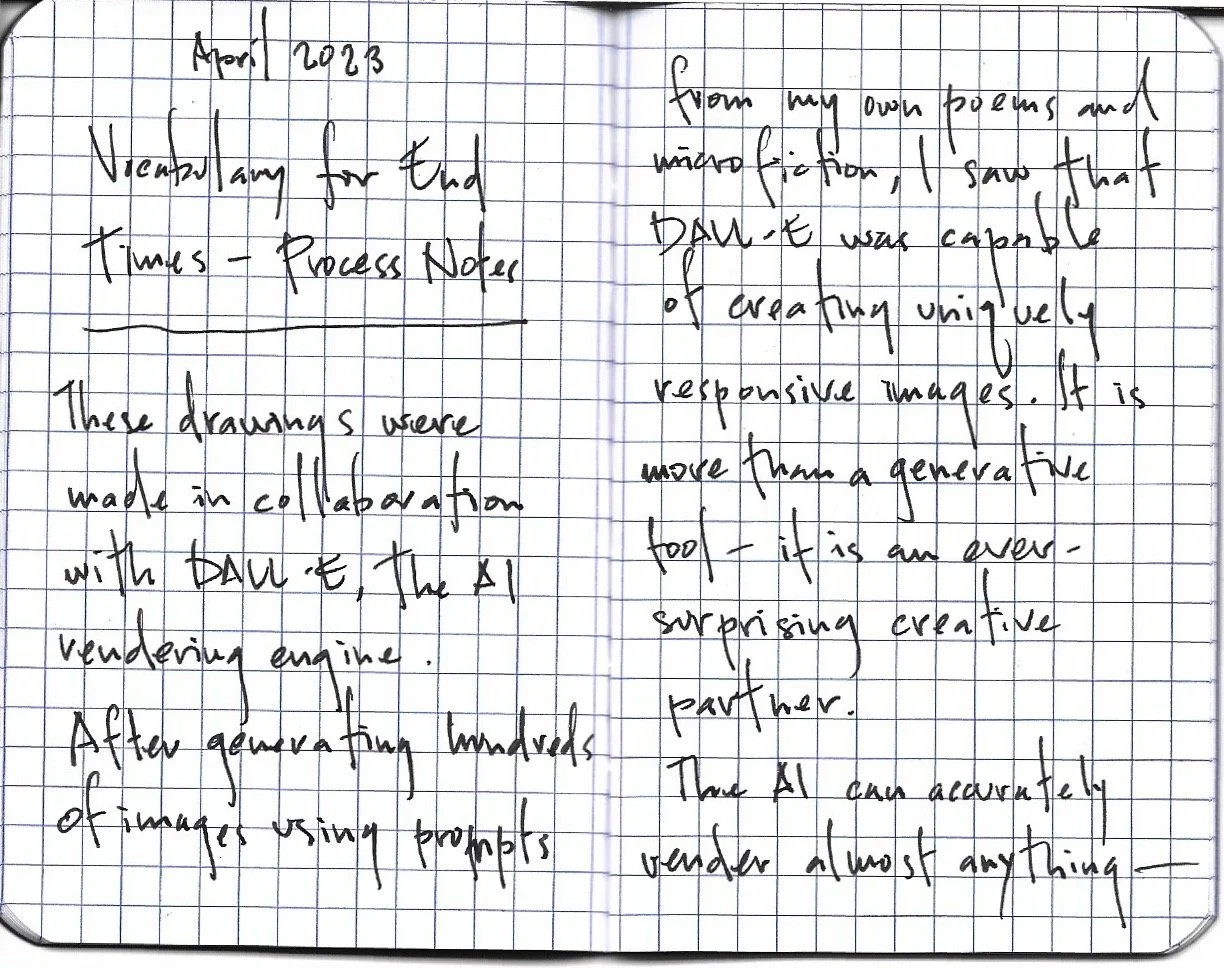 April 2023
Vocabullary for End
Times – Process Notes
These drawings were
made in collaboration
with DALL·E, the AI
rendering engine.
After generating hundreds
of images using prompts
from my own poems and
microfiction, I saw that
DALL·E was capable
of creating uniquely
responsive images. It is
more than a generative
tool – it is an ever-
surprising creative
partner.
The AI can accurately
render almost anything —